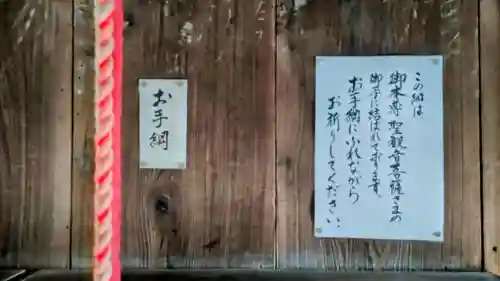 この綱は
御本尊聖観音菩薩さまの
御手に結ばれております。
お手綱にふれながら
お祈りしてください。
お手綱